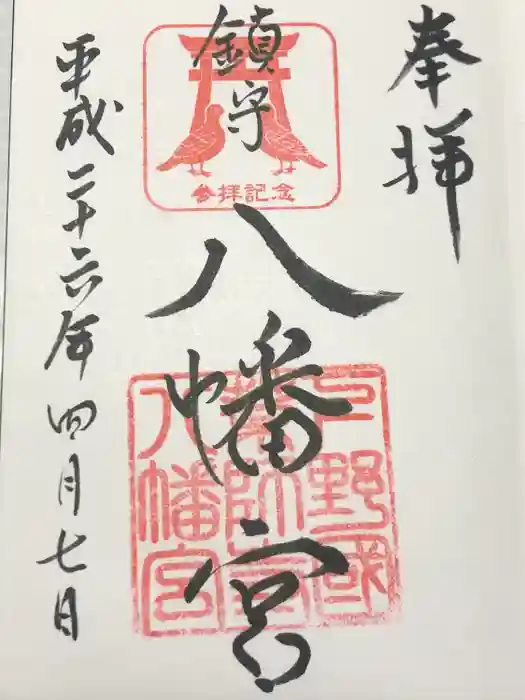 奉拝
鎮守
参拝記念
八幡宮
野國
八幡宮
平成二十六年四月七日